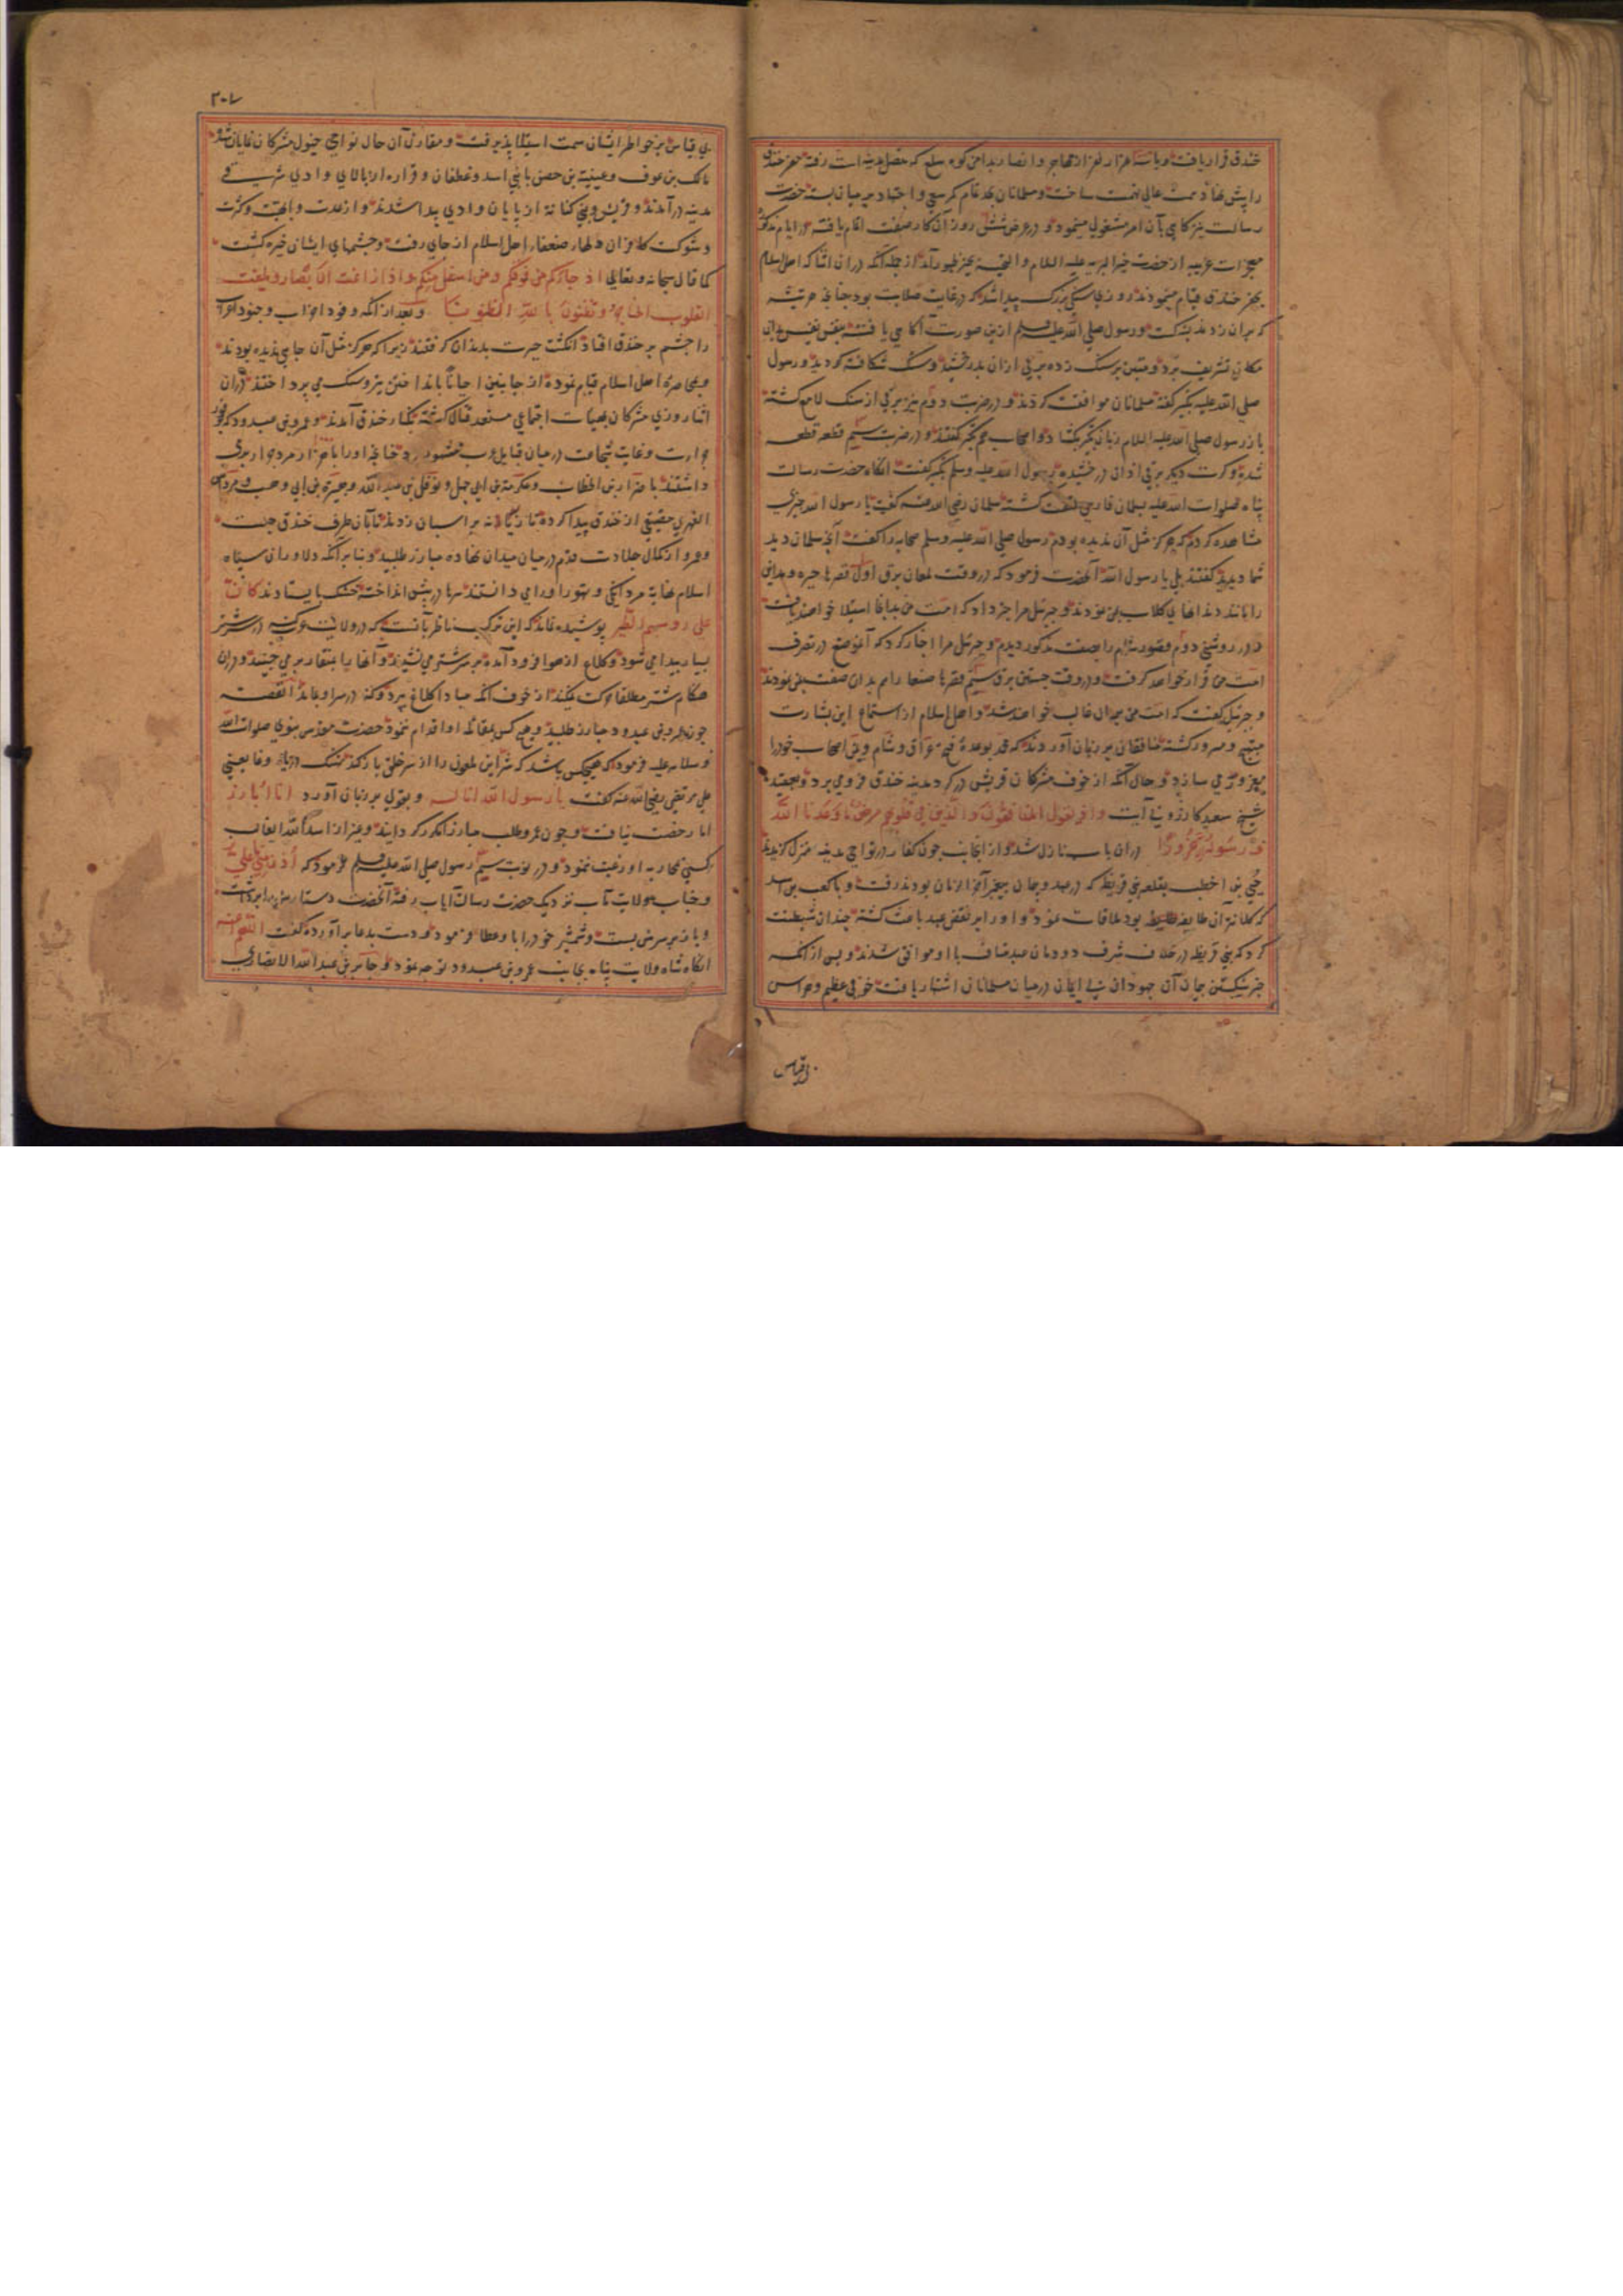 خندق قرار یافت و با سه هزار نفر از مهاجر و انصار بدامن کوه سلع که متصل مدینه است رفته حفر خندق
را پیش نهاد همت عالی نهمت ساخت و مسلمانان بجد تمام کمر سعی و اجتهاد بر میان بسته حضرت
رسالت نیز کاهی بآن امر مشغولی مینمود و در عرض شش روز آن کار صفت اتمام یافت و در ایام مذکور
معجزات غریبه از حضرت خیر البریه علیه السلام و التحیه بحیز ظهور آمد از جمله آنکه در آن اثنا که اهل اسلام
بحفر خندق قیام مینمودند روزی سنکی بزرک پیدا شد که در غایت صلابت بود چنانچه هر تیشه
که بر آن زدند بشکست و رسول صلی الله علیه و سلم ازین صورت آکاهی یافته بنفس نفیس بدان
مکان تشریف برد و متین بر سنک زده برقی از آن بدرخشید و سنک شکافته کردید و رسول
صلی الله علیه تکبیر کفته مسلمانان موافقت کردند و در ضربت دوم نیز برقی از سنک لامع کشته
باز رسول صلی الله علیه السلام زبان بتکبیر بکشاد و اصحاب هم تکبیر کفتند و در ضربت سیم قطعه قطعه
شده و کرت دیکر برقی از آن درخشیده رسول الله علیه و سلم تکبیر کفت آنکاه حضرت رسالت
پناه صلوات الله علیه بسلمان فارسی ملتفت کشته سلمان رضی الله عنه کفت یا رسول الله چیزی
مشاهده کردم که هرکز مثل آن ندیده بودم رسول صلی الله علیه و سلم صحابه را کفت آنچه سلمان دید
شما دیدید کفتند بلی یا رسول الله آنحضرت فرمود که در وقت لمعان برق اول قصرها حیره و مداین
را مانند دندانهای کلاب بمن نمودند و جبرئیل مرا خبر داد که امت من بدانجا استیلا خواهند یافت
و در روشنی دوم قصور شام را بصفت مذکور دیدم و جبرئیل مرا اخبار کرد که آن موضع در تصرف
امت من قرار خواهد کرفت و در وقت جستن برق سیم قصرها صنعا را هم بدان صفت بمن نمودند
و جبرئیل کفت که امت من بر آن غالب خواهند شد و اهل اسلام از استماع این بشارت
مبتهج و مسرور کشته منافقان بر زبان آوردند که محمد بوعده فتح عراق و شام و یمن اصحاب خود را
مغرور می سازد و حال آنکه از خوف مشرکان قریش در کرد مدینه خندق فرو می برد و بعقیده
شیخ سعید کازرونی آیت و اذ یقول المنافقون و الذین فی قلوبهم مرض ما وعدنا الله
و رسوله الا غرورا در آن باب نازل شد و از آنجانب چون کفار در نواحی مدینه منزل کزیدند
حیی بن اخطب بقلعه بنی قریظه که در عهد و پیمان پیغمبر آخر الزمان بودند رفت و با کعب بن اسد
که کلانتر آن طایفه بود ملاقات نمود و او را بر نقض عهد باعث کشته چندان شیطنت
کرد که بنی قریظه در خلاف شرف دودمان عبد مناف با او موافق شدند و پس از آنکه
خبر شکستن پیمان آن جهودان بی ایمان در میان مسلمانان اشتهار یافت خوفی عظیم و هراس
بی قیاس
۲۰۷
بی قیاس بر خواطر ایشان سمت استیلا پذیرفت و مقارن آن حال نواحی خیول مشرکان نمایان شد
مالک بن عوف و عیینه بن حصن با بنی اسد و غطفان و فزاره از بالای وادی شرقی
مدینه درآمدند و قریش و بنی کنانه از پایان وادی پیدا شدند و از عدت و ابهت و کثرت
و شوکت کافران دلهاء ضعفاء اهل اسلام از جای رفت و چشمهای ایشان خیره کشت
کما قال سبحانه و تعالی اذ جاؤکم من فوقکم و من اسفل منکم و اذ زاغت الابصار و بلغت
القلوب الحناجر و تظنون بالله الظنونا و بعد از آنکه وفود احزاب و جنود اعراب
را چشم بر خندق افتاد انکشت حیرت بدندان کرفتند زیرا که هرکز مثل آن جایی ندیده بودند
و بمحاصره اهل اسلام قیام نموده از جانبین احیانا بانداختن تیر و سنک می پرداختند در آن
اثنا روزی مشرکان بهیات اجتماعی مستعد قتال کشته بکنار خندق آمدند و عمرو بن عبدود که بوفور
جرات و غایت شجاعت در میان قبایل عرب مشهور بود چنانچه او را با هزار مرد برابر
داشتند با ضرار بن الخطاب و عکرمه بن ابی جهل و نوفل بن عبد الله و هبیره بن ابی وهب و مرداس
الفهری مضیقی از خندق پیدا کرده تازیانه بر اسپان زدند تا بآن طرف خندق جست
و عمرو از کمال جلادت قدم در میان میدان نهاده مبارز طلبید و بنا بر آنکه دلاوران سپاه
اسلام نهایه مردانکی و تهور او را می دانستند سرها در پیش انداخته خشک بایستادند کان
علی رؤسهم الطیر پوشیده نماند که این ترکیب ناظر بآنست که در ولایت عرب کنه در شتر
بسیار پیدا می شود و کلاغ از هوا فرود آمده بر سر شتر می نشیند و آنها را بمنقار بر می چیند و در آن
هنکام شتر مطلقا حرکت نمیکند از خوف آنکه مبادا کلاغ بپرد و کنه در سر او بماند القصه
چون عمرو بن عبدود مبارز طلبید و هیچ کس بمقاتله او اقدام ننمود حضرت مقدس نبوی صلوات الله
و سلامه علیه فرمود که هیچکس باشد که شر این ملعون را از سر خلق باز کند نهنک دریای وغا یعنی
علی مرتضی رضی الله عنه کفت یا رسول الله انا له و بقولی بر زبان آورد انا ابارزه
اما رخصت نیافت و چون عمرو طلب مبارز مکرر کردانید و غیر از اسد الله الغالب
کسی بمحاربه او رغبت ننمود و در نوبت سیم رسول صلی الله علیه و سلم فرمود که ادن منی یا علی
و جناب ولایت مآب نزدیک حضرت رسالت ایاب رفته آنحضرت دستار از سر او برداشت
و باز بر سرش بست و شمشیر خود را با و عطا فرمود و دست بدعا برآورده کفت اللهم اعنه
آنکاه شاه ولایت پناه بجانب عمرو بن عبدود توجه نمود و جابر بن عبد الله الانصاری